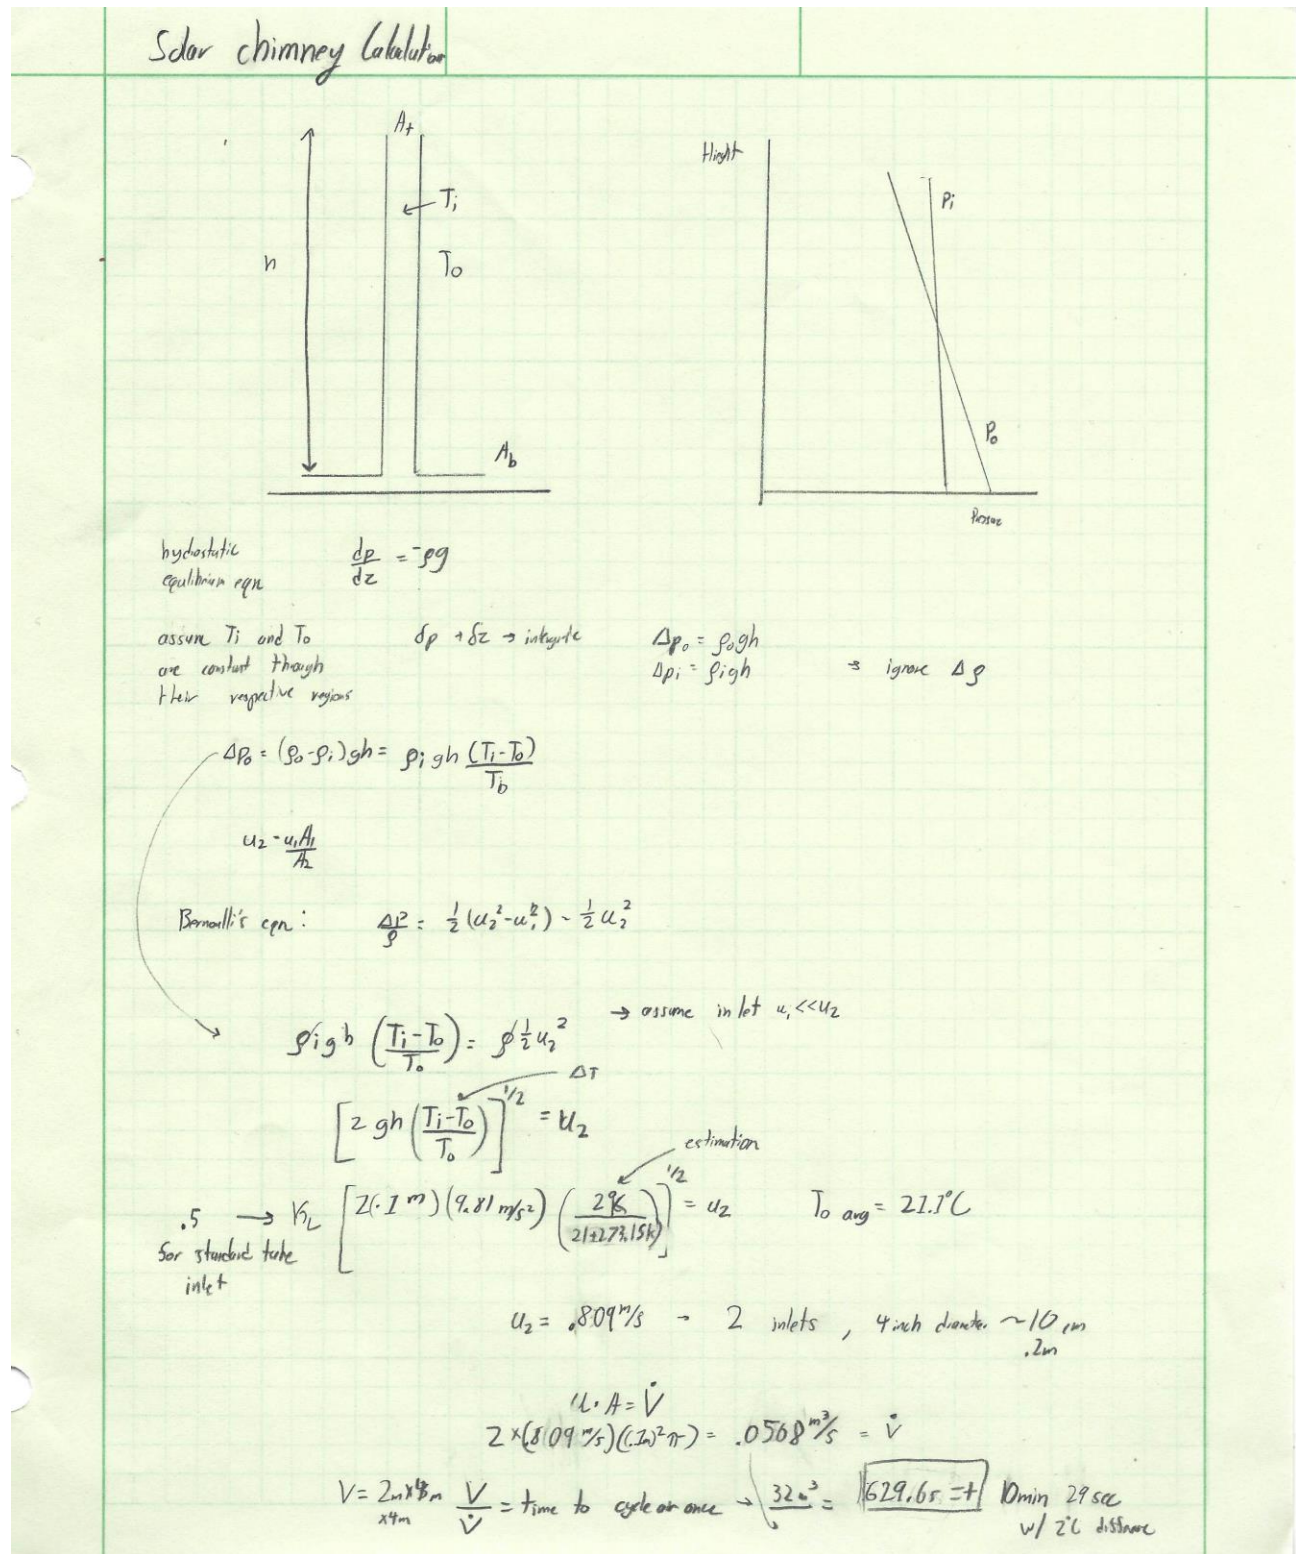 Solar chimney Calculation
A_t
T_i
h
T_o
A_b
Hieght
P_i
P_o
Pressure
hydrostatic
equlibrium eqn
dp/dz = -ρg
assume Ti and To
are constant though
their respective regions
δp + δz → intergrate
Δp_o = ρ_o gh
Δp_i = ρ_i gh
→ ignore Δρ
ΔP_o = (ρ_o - ρ_i) gh = ρ_i gh (T_i - T_o)/T_o
u_2 = u_1 A_1/A_2
Bernoulli's eqn: ΔP/ρ = 1/2 (u_2^2 - u_1^2) ~ 1/2 u_2^2
→ assume inlet u_1 << u_2
ρ_i gh ((T_i - T_o)/T_o) = ρ 1/2 u_2^2
ΔT
[2 gh ((T_i - T_o)/T_o)]^1/2 = u_2
estimation
.5 → K_L [2(.1 m)(9.81 m/s²)(2K/(21+273.15K))]^1/2 = u_2
T_o avg = 21.1°C
for standard tube
inlet
u_2 = .809 m/s - 2 inlets, 4 inch diameter ~10 cm
.2m
u·A = V̇
2×(.809 m/s)((.1m)²π) = .0568 m³/s = V̇
V = 2m×4m
×4m
V/V̇ = time to cycle air once → 32m³ = 629.6s = t
10min 29 sec
w/ 2°C